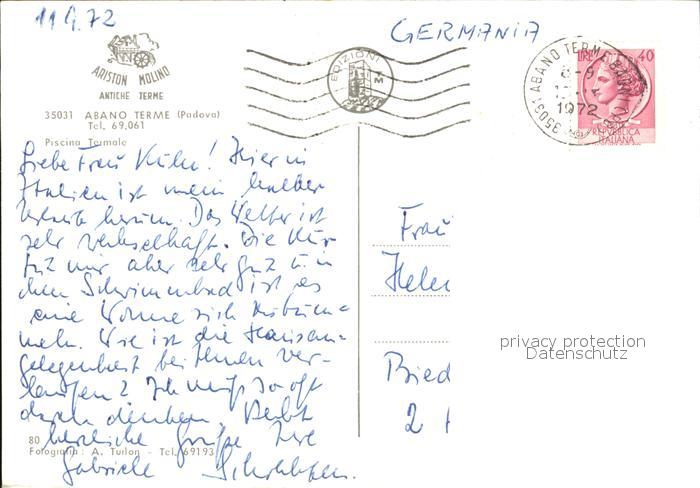 11.9.72
GERMANIA
ARISTON MOLINO
ANTICHE TERME
35031 ABANO TERME (Padova)
Tel. 69.061
Piscina Termale
EDIZIONI
35031 ABANO TERME
1972
LIRE 40
REPVBBLICA
ITALIANA
Liebe Frau Kühn! Hier in
Italien ist mein halber
Urlaub herum. Das Wetter ist
sehr wechselhaft. Die Kur
tut mir aber sehr gut u. in
dem Schwimmbad ist es
eine Wonne sich
Wie ist die
gelegenheit bei Ihnen ver-
laufen? Ich muß so oft
daran denken.
herzliche Grüße Ihre
Gabriele
80
Fotografia: A. Turlon - Tel. 69193
Frau
Helen
Bied
2
privacy protection
Datenschutz